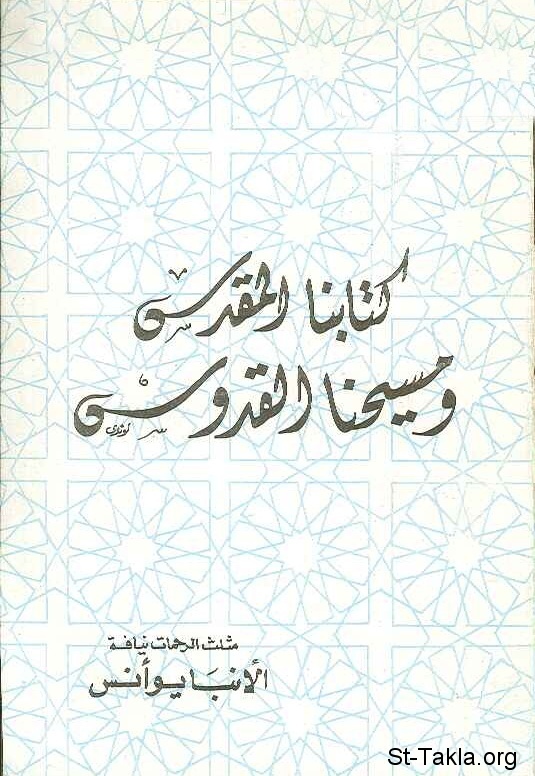 كتابنا المقدس
ومسيحنا القدوس
مثلث الرحمات نيافة
الأنبا يوأنس
St-Takla.org